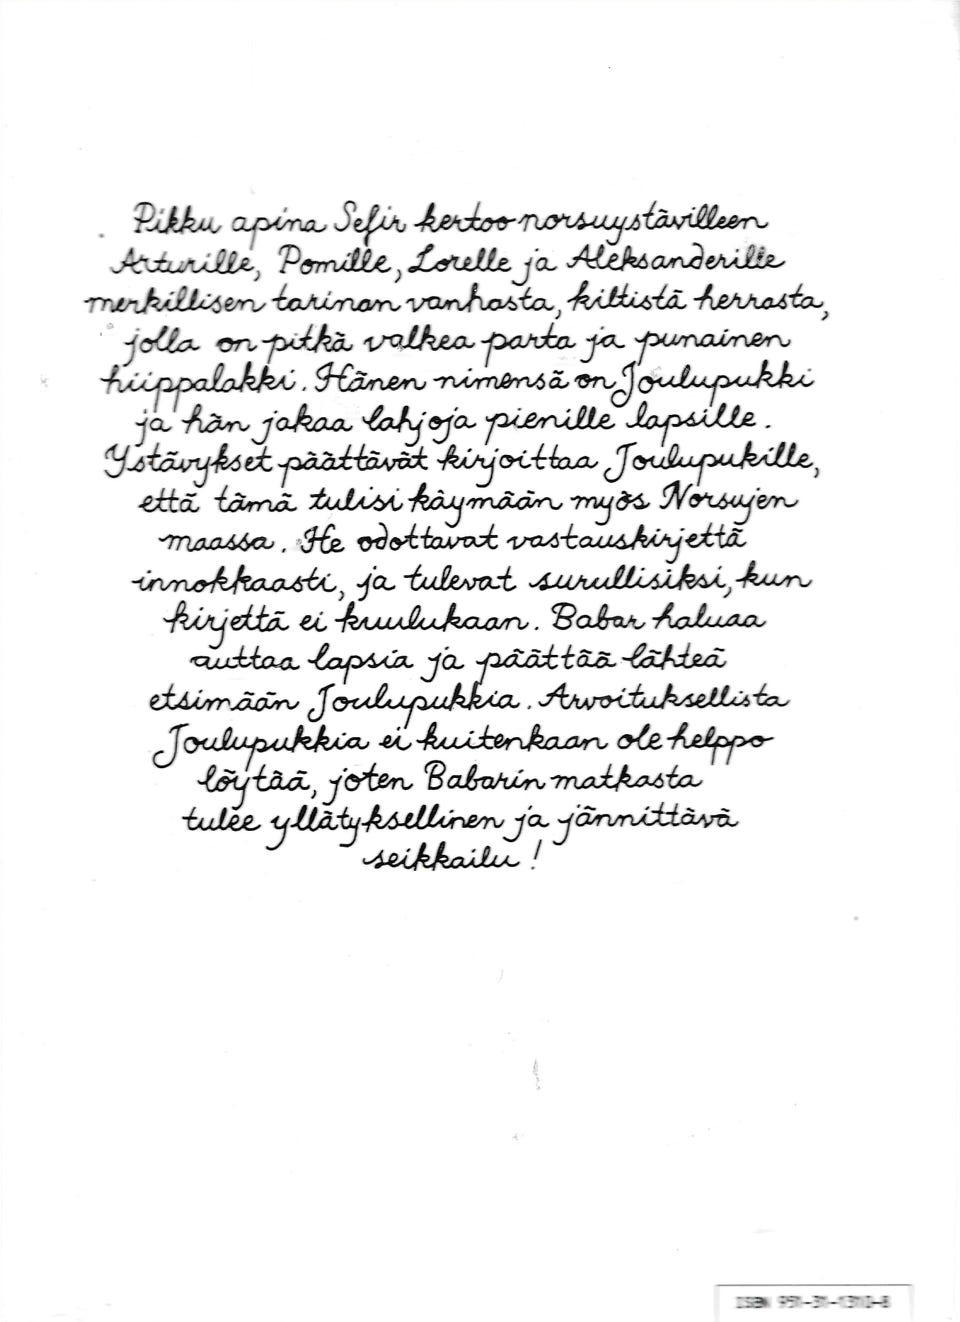 Pikku apina Sefir kertoo norsuystävilleen
Arturille, Pomille, Lorelle ja Aleksanderille
merkillisen tarinan vanhasta, kiltistä herrasta,
jolla on pitkä valkea parta ja punainen
hiippalakki. Hänen nimensä on Joulupukki
ja hän jakaa lahjoja pienille lapsille.
Ystävykset päättävät kirjoittaa Joulupukille,
että tämä tulisi käymään myös Norsujen
maassa. He odottavat vastauskirjettä
innokkaasti, ja tulevat surullisiksi, kun
kirjettä ei kuulukaan. Babar haluaa
auttaa lapsia ja päättää lähteä
etsimään Joulupukkia. Arvoituksellista
Joulupukkia ei kuitenkaan ole helppo
löytää, joten Babarin matkasta
tulee yllätyksellinen ja jännittävä
seikkailu!
ISBN 951-31-1310-8